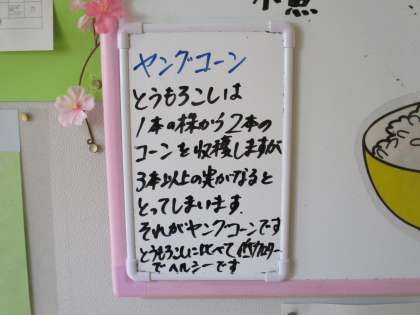 ヤングコーン
とうもろこしは
1本の株から2本の
コーンを収穫しますが
3本以上の実がなると
とってしまいます.
それがヤングコーンです
とうもろこしに比べて低カロリー
でヘルシーです